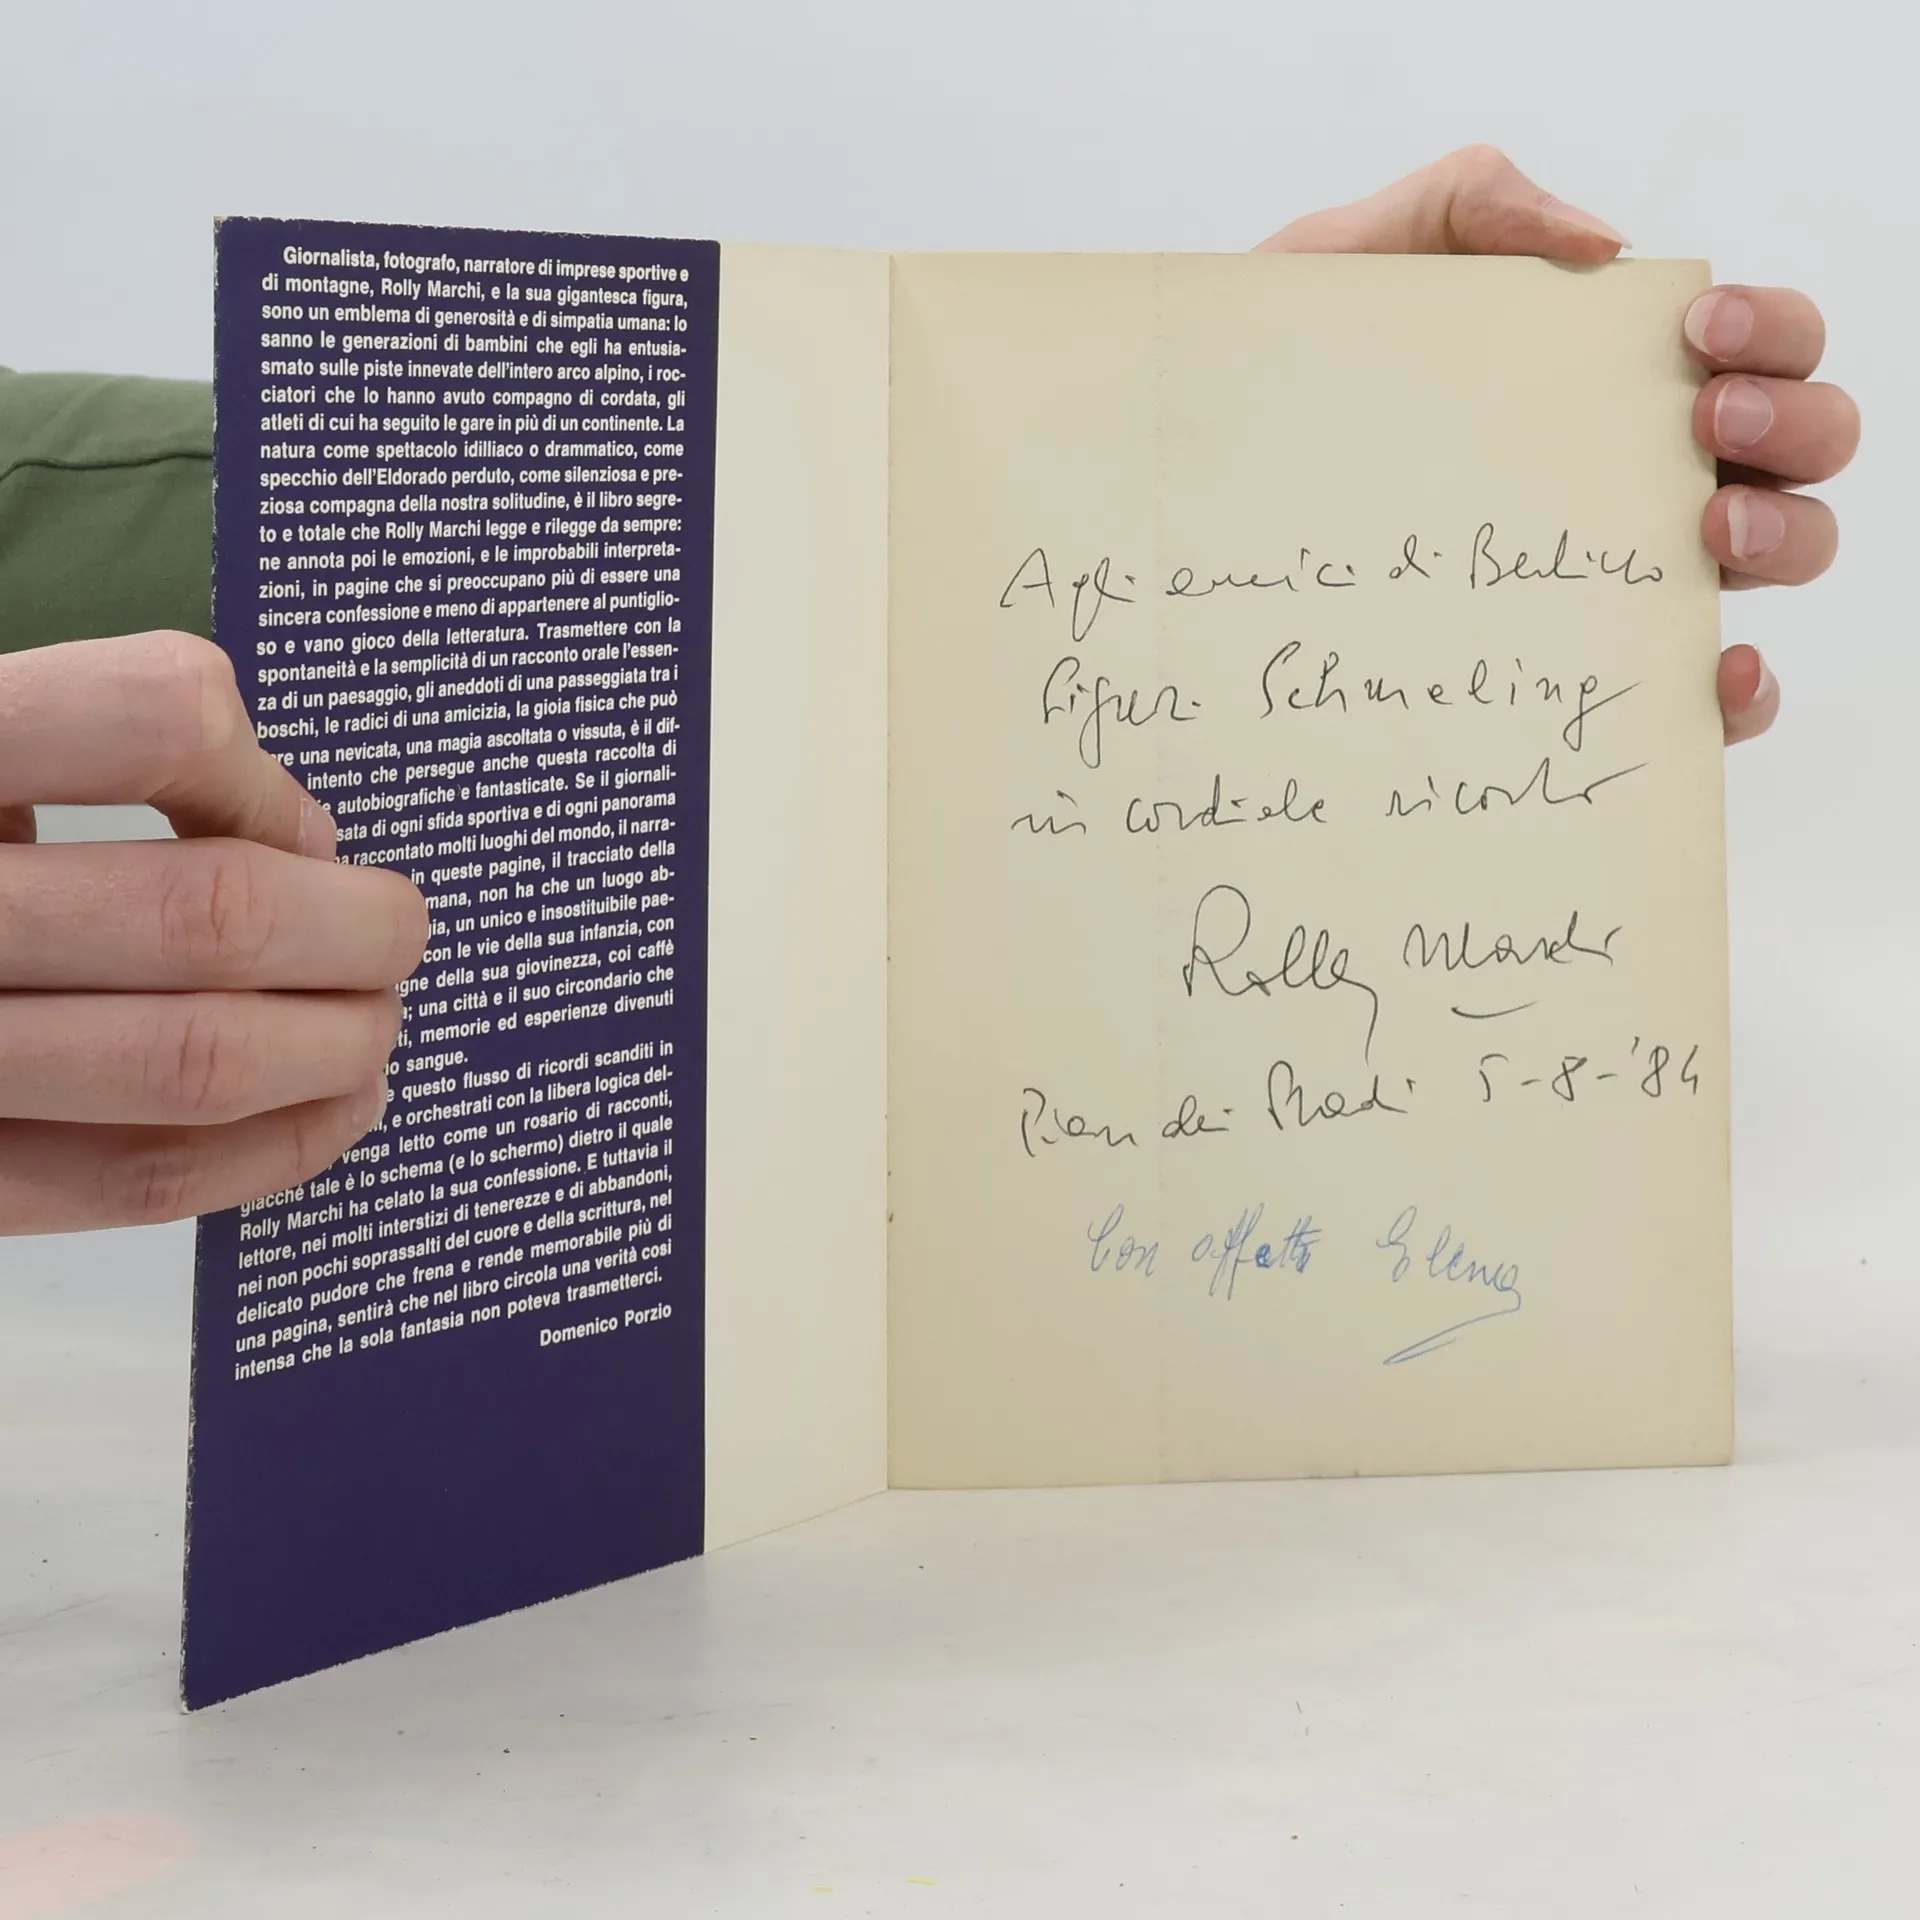 Giornalista, fotografo, narratore di imprese sportive e
di montagne, Rolly Marchi, e la sua gigantesca figura,
sono un emblema di generosità e di simpatia umana: lo
sanno le generazioni di bambini che egli ha entusia-
smato sulle piste innevate dell'intero arco alpino, i roc-
ciatori che lo hanno avuto compagno di cordata, gli
atleti di cui ha seguito le gare in più di un continente. La
natura come spettacolo idilliaco o drammatico, come
specchio dell'Eldorado perduto, come silenziosa e pre-
ziosa compagna della nostra solitudine, è il libro segre-
to e totale che Rolly Marchi legge e rilegge da sempre:
ne annota poi le emozioni, e le improbabili interpreta-
zioni, in pagine che si preoccupano più di essere una
sincera confessione e meno di appartenere al puntiglio-
so e vano gioco della letteratura. Trasmettere con la
spontaneità e la semplicità di un racconto orale l'essen-
za di un paesaggio, gli aneddoti di una passeggiata tra i
boschi, le radici di una amicizia, la gioia fisica che può
una nevicata, una magia ascoltata o vissuta, è il dif-
intento che persegue anche questa raccolta di
autobiografiche e fantasticate. Se il giornali-
di ogni sfida sportiva e di ogni panorama
raccontato molti luoghi del mondo, il narra-
in queste pagine, il tracciato della
non ha che un luogo ab-
un unico e insostituibile pae-
con le vie della sua infanzia, con
della sua giovinezza, coi caffè
una città e il suo circondario che
memorie ed esperienze divenuti
sangue.
questo flusso di ricordi scanditi in
e orchestrati con la libera logica del-
venga letto come un rosario di racconti,
giacché tale è lo schema (e lo schermo) dietro il quale
Rolly Marchi ha celato la sua confessione. E tuttavia il
lettore, nei molti interstizi di tenerezze e di abbandoni,
nei non pochi soprassalti del cuore e della scrittura, nel
delicato pudore che frena e rende memorabile più di
una pagina, sentirà che nel libro circola una verità così
intensa che la sola fantasia non poteva trasmetterci.
Domenico Porzio
Agli amici di
Schmeling
in cordiale ricordo
Rolly Marchi
Pian dei 5-8-'84
Con affetto Elena